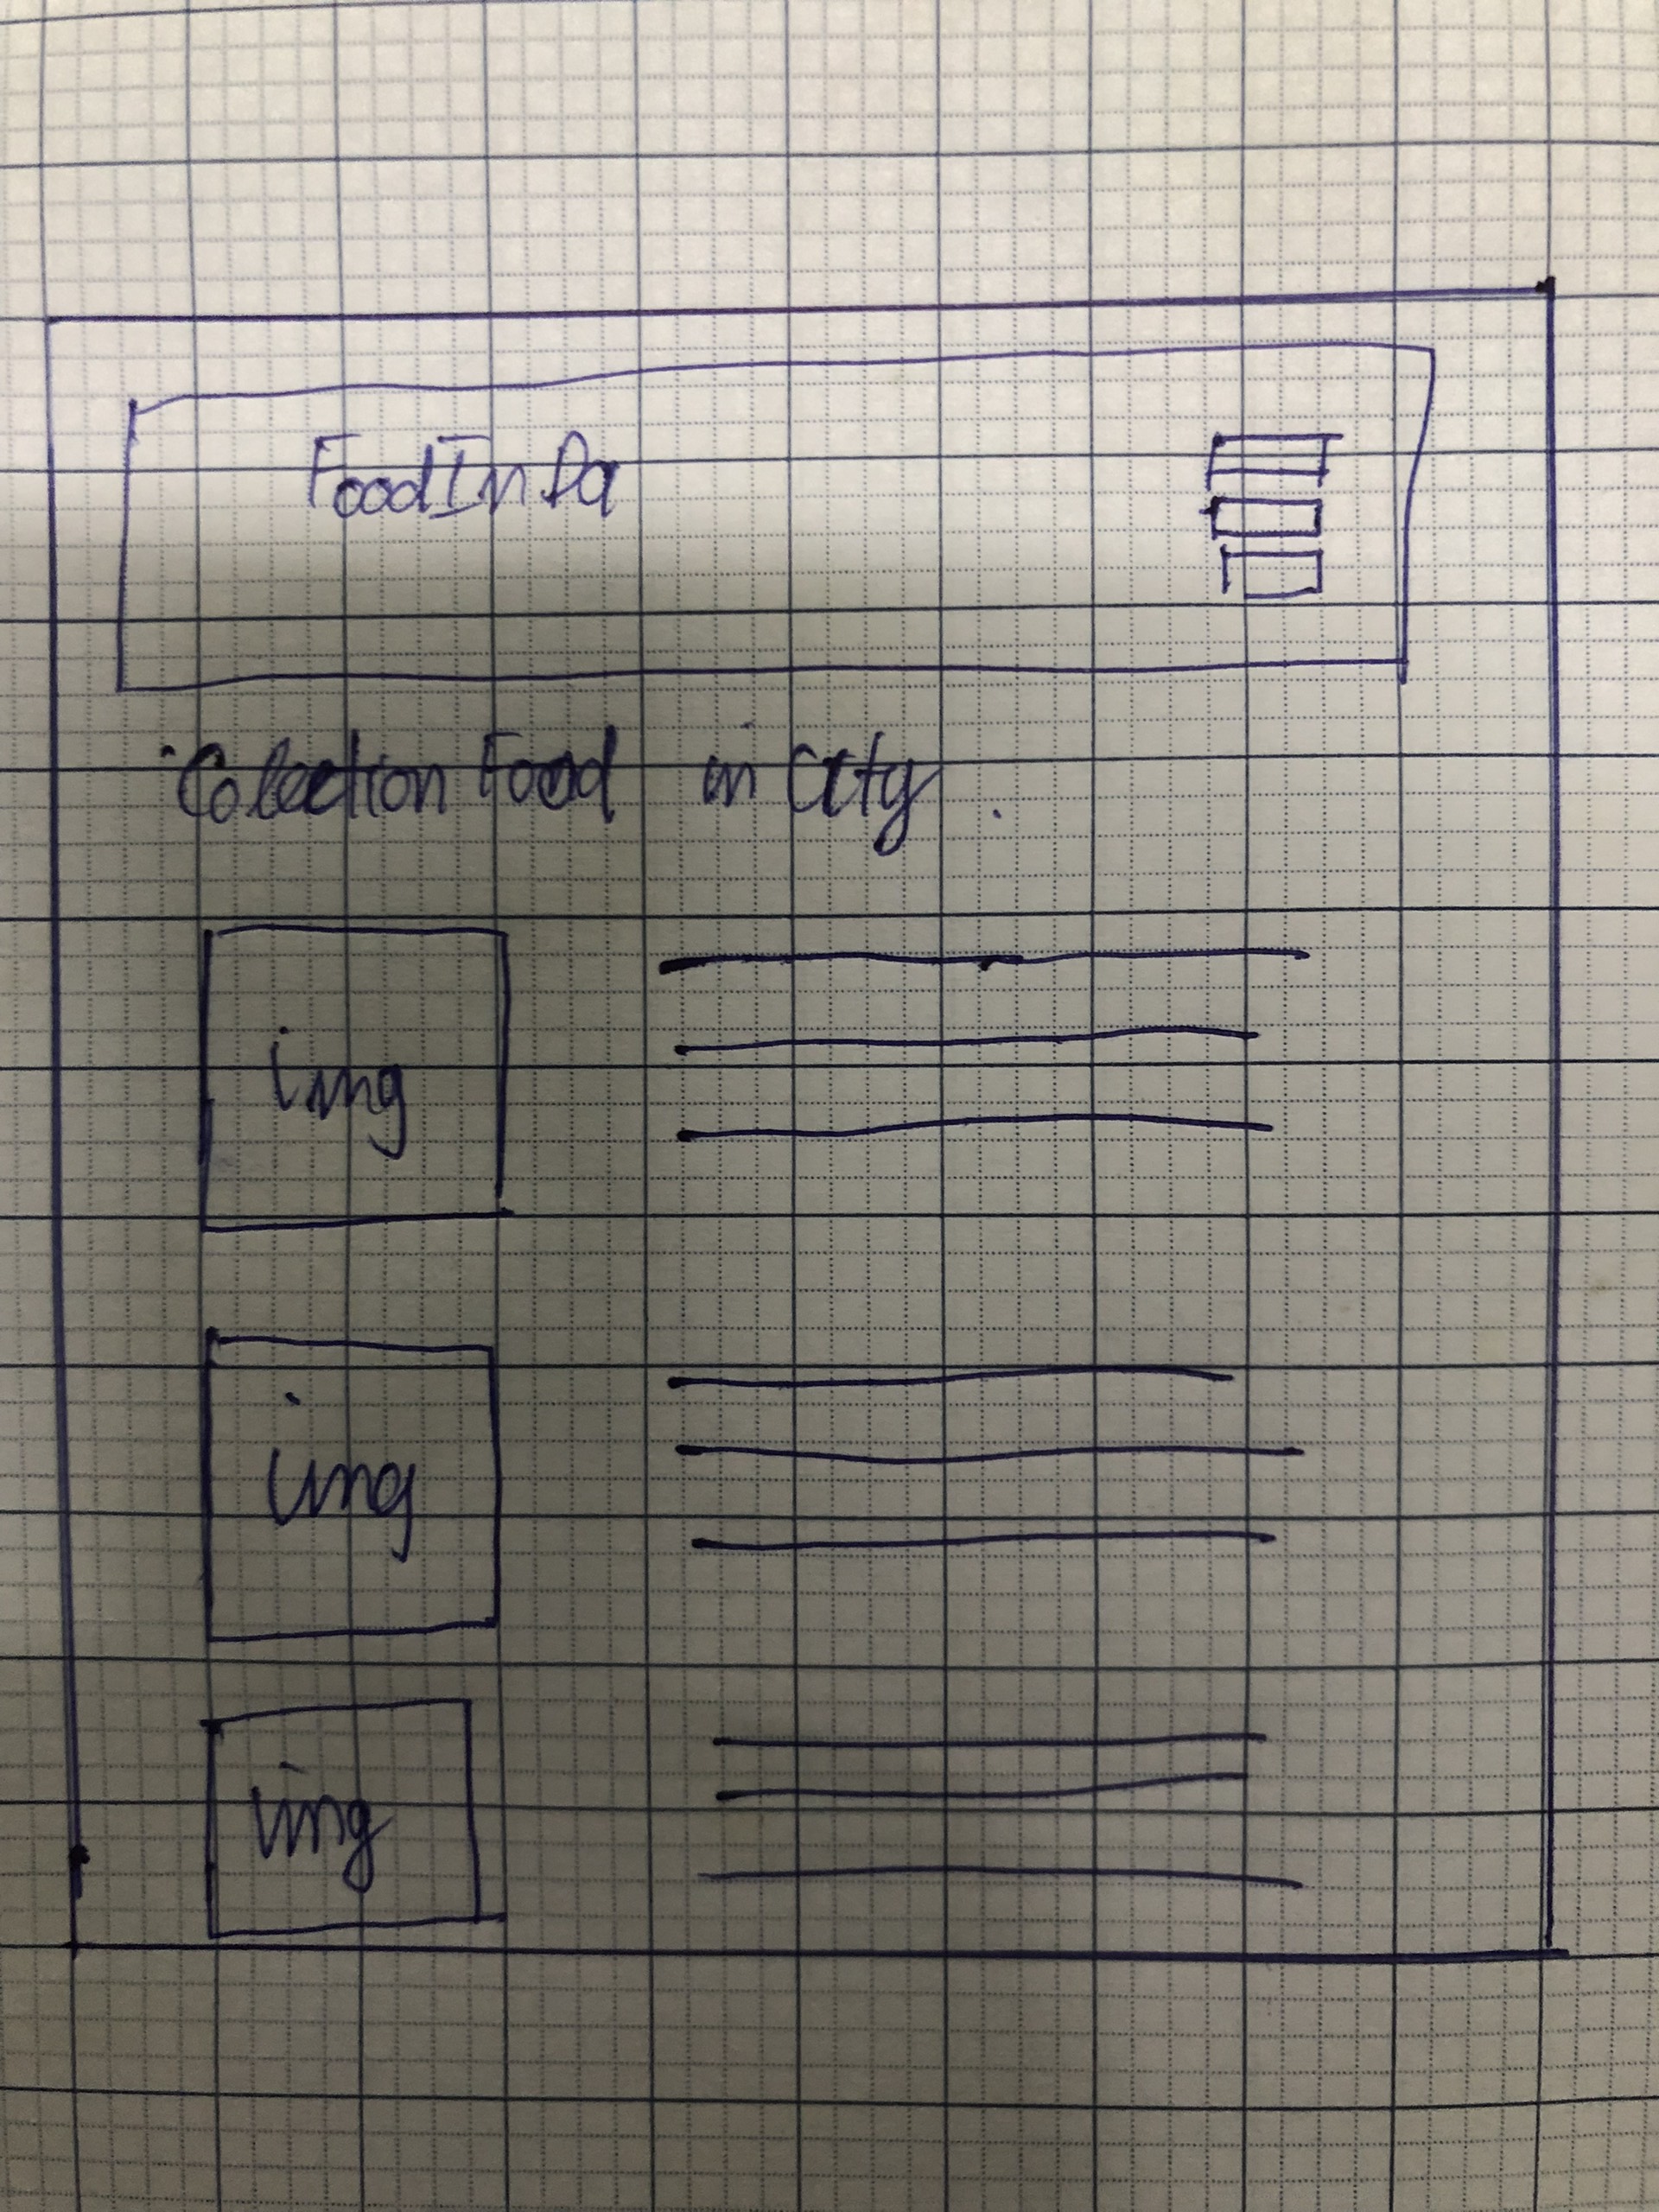 FoodInDa
Colection Food in City.
img
img
img